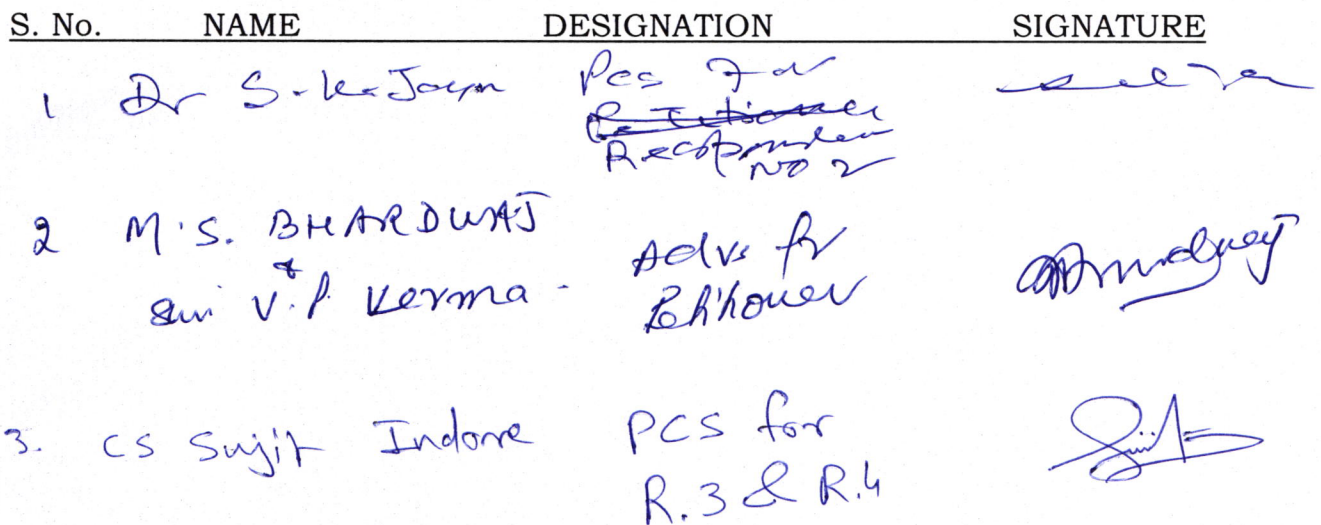 S. No. NAME DESIGNATION SIGNATURE
1 Dr S. K. Jain PCS For
Respondent
No 2
2 M.S. BHARDWAJ Advs for
& Petitioner
V.P. Verma -
3. CS Sujit Indore PCS for
R.3 & R.4